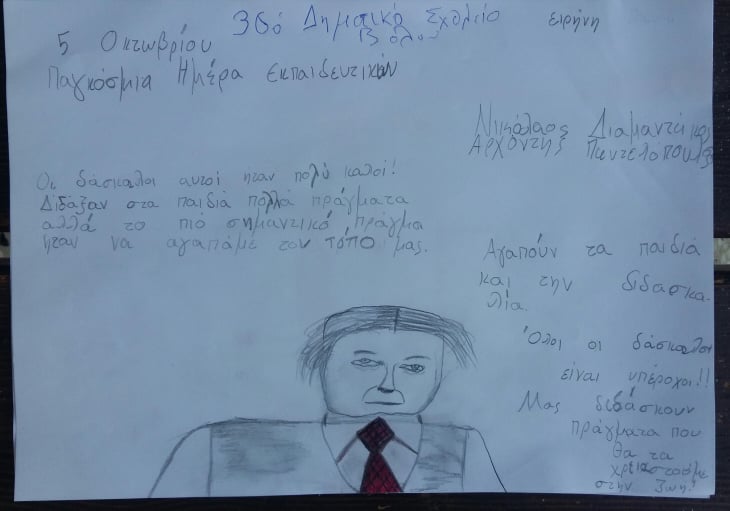 3ό Δημοτικό Σχολείο
Βόλου
ειρήνη
5 Οκτωβρίου
Παγκόσμια Ημέρα εκπαιδευτικών
Νικόλαος Διαμαντάκος
Αρχοντής Παντελοπουλος
Οι δάσκαλοι αυτοί ήταν πολύ καλοί!
Διδάξαν στα παιδιά πολλά πράγματα
αλλά το πιό σημαντικό πράγμα
ήταν να αγαπάμε τον τόπο μας.
Αγαπούν τα παιδιά
και την διδασκα-
λία.
Όλοι οι δάσκαλοι
είναι υπέροχοι!!
Μας διδάσκουν
πράγματα που
θα τα
χρειαστούμε
στην ζωή!